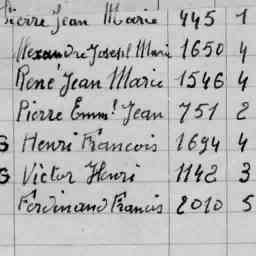 Pierre Jean Marie 445 1
Alexandre Joseph Marie 1650 4
René Jean Marie 1546 4
Pierre Emm! Jean 751 2
G Henri Francois 1694 4
G Victor Henri 1142 3
Ferdinand Francis 2010 5